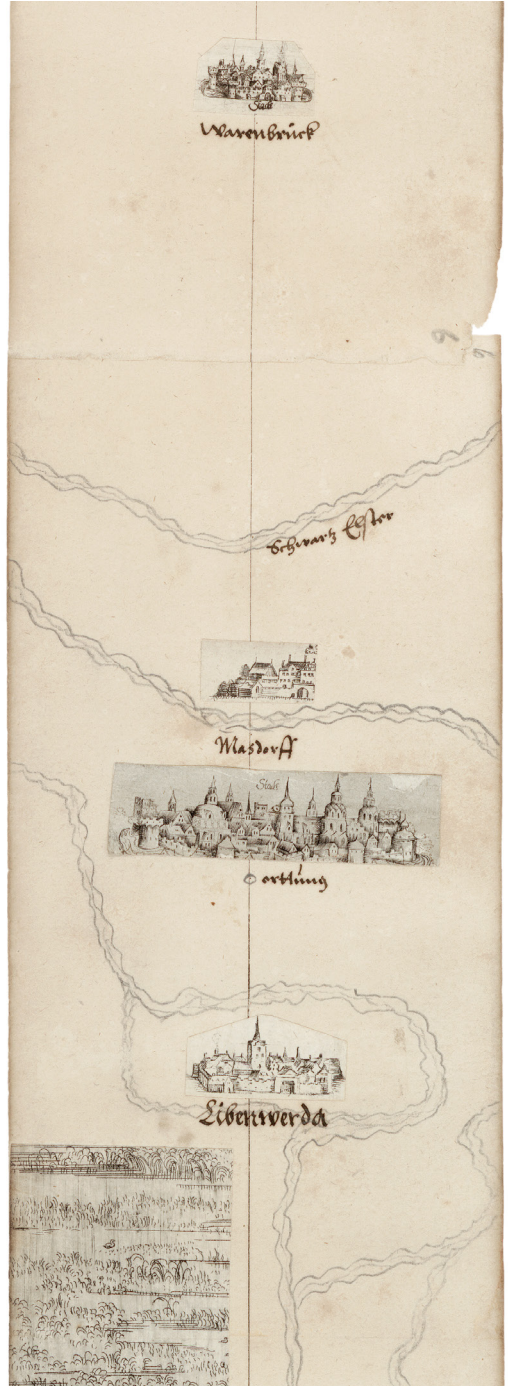 Stadt
Warenbrück
6
6
Schwartz Elster
Masdorff
Stadt
ortŭng
Libenwerda